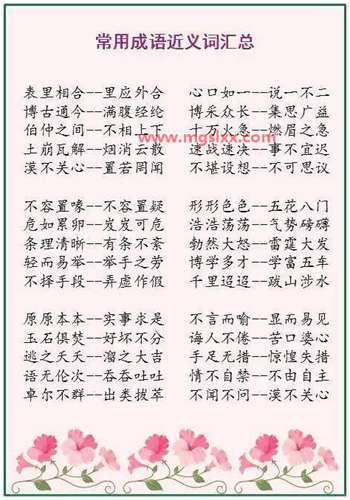 常用成语近义词汇总
表里相合--里应外合 心口如一--说一不二
博古通今--满腹经纶 博采众长--集思广益
伯仲之间--不相上下 十万火急--燃眉之急
www.mgslxx.com
土崩瓦解--烟消云散 速战速决--事不宜迟
漠不关心--置若罔闻 不堪设想--不可思议
不容置喙--不容置疑 形形色色--五花八门
危如累卵--发发可危 浩浩荡荡--气势磅礴
条理清晰--有条不紊 勃然大怒--雷霆大发
轻而易举--举手之劳 博学多才--学富五车
不择手段--弄虚作假 千里迢迢--跋山涉水
原原本本--实事求是 不言而喻--显而易见
玉石俱焚--好坏不分 诲人不倦--苦口婆心
逃之夭夭--溜之大吉 手足无措--惊惶失措
语无伦次--吞吞吐吐 情不自禁--不由自主
卓尔不群--出类拔萃 不闻不问--漠不关心